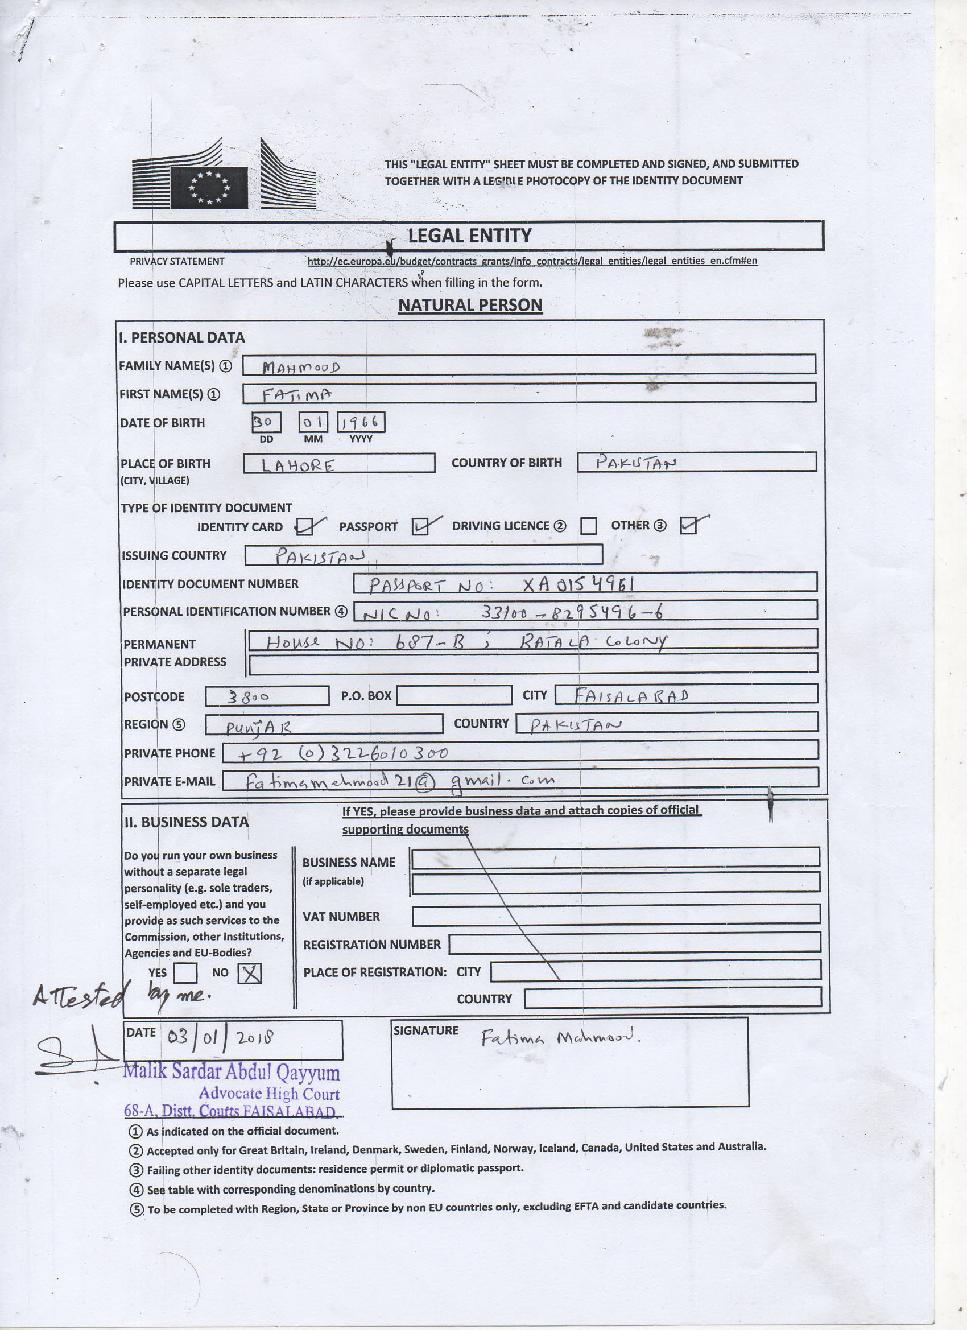 THIS "LEGAL ENTITY" SHEET MUST BE COMPLETED AND SIGNED, AND SUBMITTED
TOGETHER WITH A LEGIBLE PHOTOCOPY OF THE IDENTITY DOCUMENT
LEGAL ENTITY
PRIVACY STATEMENT http://ec.europa.eu/budget/contracts_grants/info_contracts/legal_entities/legal_entities_en.cfm#en
Please use CAPITAL LETTERS and LATIN CHARACTERS when filling in the form.
NATURAL PERSON
I. PERSONAL DATA
FAMILY NAME(S) ① MAHMOOD
FIRST NAME(S) ① FATIMA
DATE OF BIRTH 30 01 1966
DD MM YYYY
PLACE OF BIRTH LAHORE COUNTRY OF BIRTH PAKISTAN
(CITY, VILLAGE)
TYPE OF IDENTITY DOCUMENT
IDENTITY CARD PASSPORT DRIVING LICENCE ② OTHER ③
ISSUING COUNTRY PAKISTAN
IDENTITY DOCUMENT NUMBER PASSPORT NO: XA0154961
PERSONAL IDENTIFICATION NUMBER ④ NIC NO: 33100-8295496-6
PERMANENT House NO: 687-B ; BATALA COLONY
PRIVATE ADDRESS
POSTCODE 3800 P.O. BOX CITY FAISALABAD
REGION ⑤ PUNJAB COUNTRY PAKISTAN
PRIVATE PHONE +92 (0)3226010300
PRIVATE E-MAIL Fatimamehmood21@gmail.com
II. BUSINESS DATA
If YES, please provide business data and attach copies of official
supporting documents
Do you run your own business
without a separate legal
personality (e.g. sole traders,
self-employed etc.) and you
provide as such services to the
Commission, other Institutions,
Agencies and EU-Bodies?
YES NO X
BUSINESS NAME
(if applicable)
VAT NUMBER
REGISTRATION NUMBER
PLACE OF REGISTRATION: CITY
COUNTRY
Attested by me.
DATE 03/01/2018
SIGNATURE Fatima Mahmood.
Malik Sardar Abdul Qayyum
Advocate High Court
68-A, Distt. Courts FAISALABAD
① As indicated on the official document.
② Accepted only for Great Britain, Ireland, Denmark, Sweden, Finland, Norway, Iceland, Canada, United States and Australia.
③ Failing other identity documents: residence permit or diplomatic passport.
④ See table with corresponding denominations by country.
⑤ To be completed with Region, State or Province by non EU countries only, excluding EFTA and candidate countries.